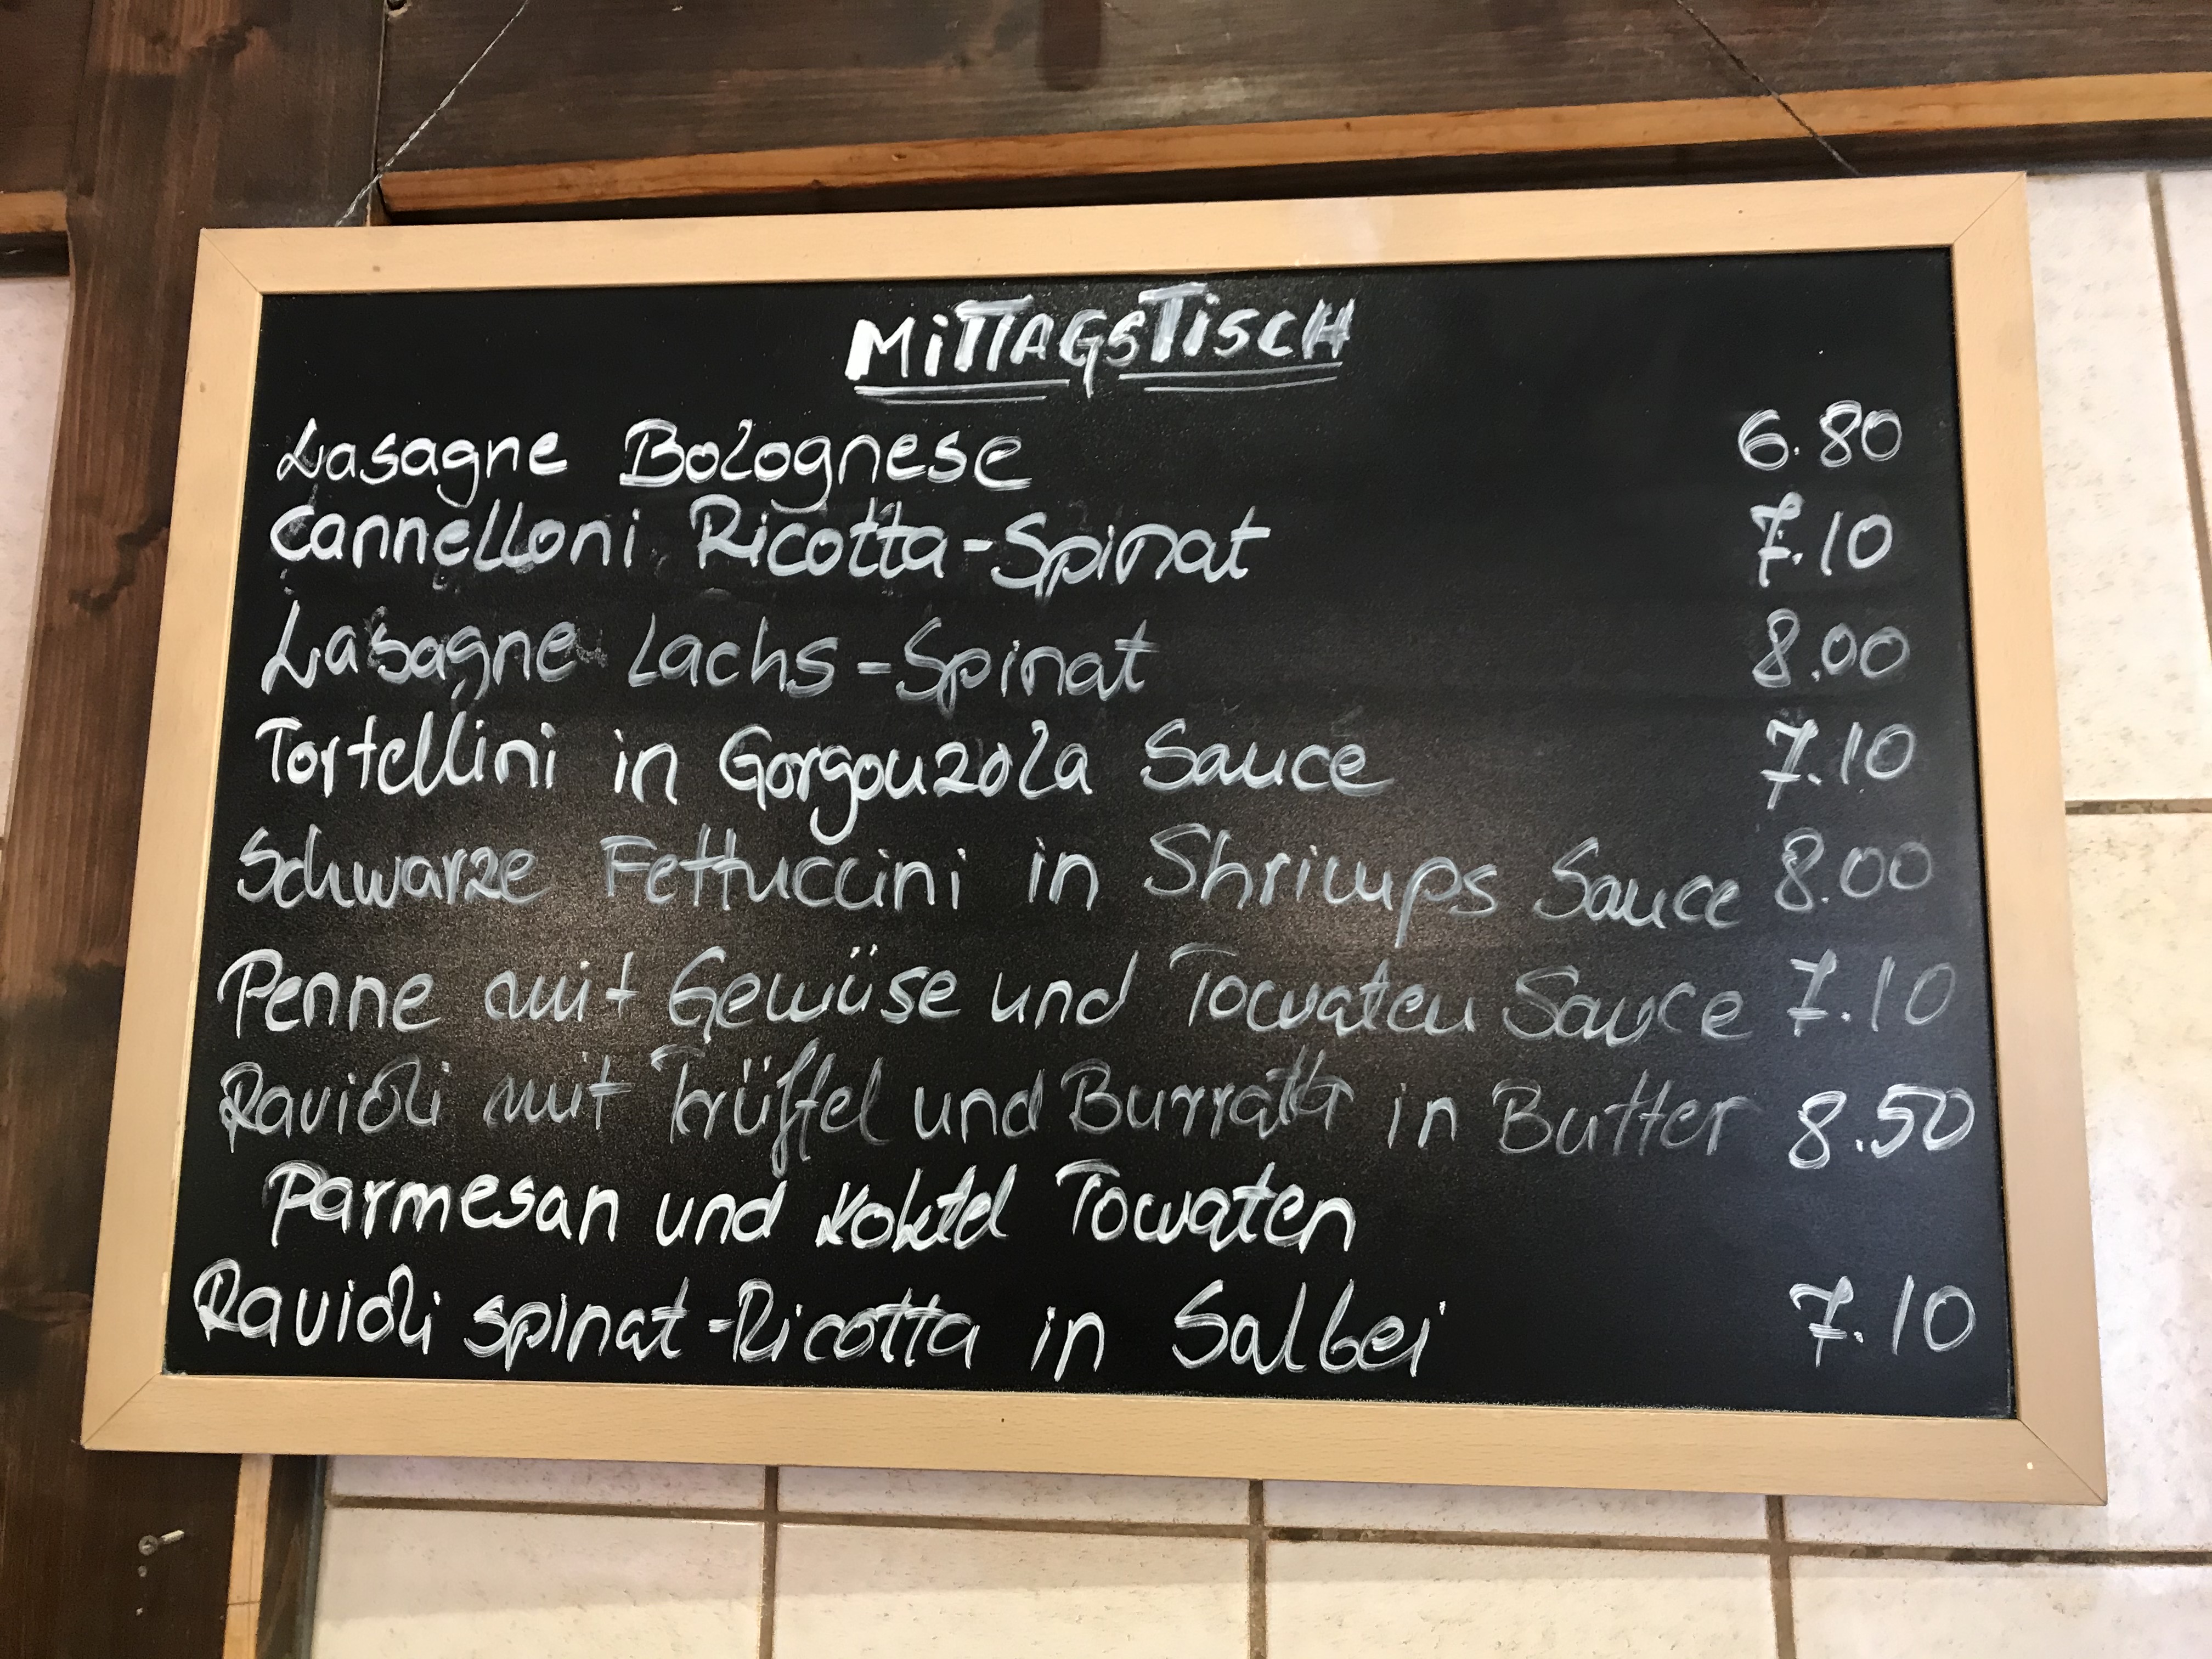 MiTTAGSTiSCH
Lasagne Bolognese 6.80
Cannelloni Ricotta-Spinat 7.10
Lasagne Lachs-Spinat 8.00
Tortellini in Gorgonzola Sauce 7.10
Schwarze Fettuccini in Shrimps Sauce 8.00
Penne mit Gemüse und Tomaten Sauce 7.10
Ravioli mit Trüffel und Burratta in Butter 8.50
Parmesan und Koktel Tomaten
Ravioli spinat-Ricotta in Salbei 7.10